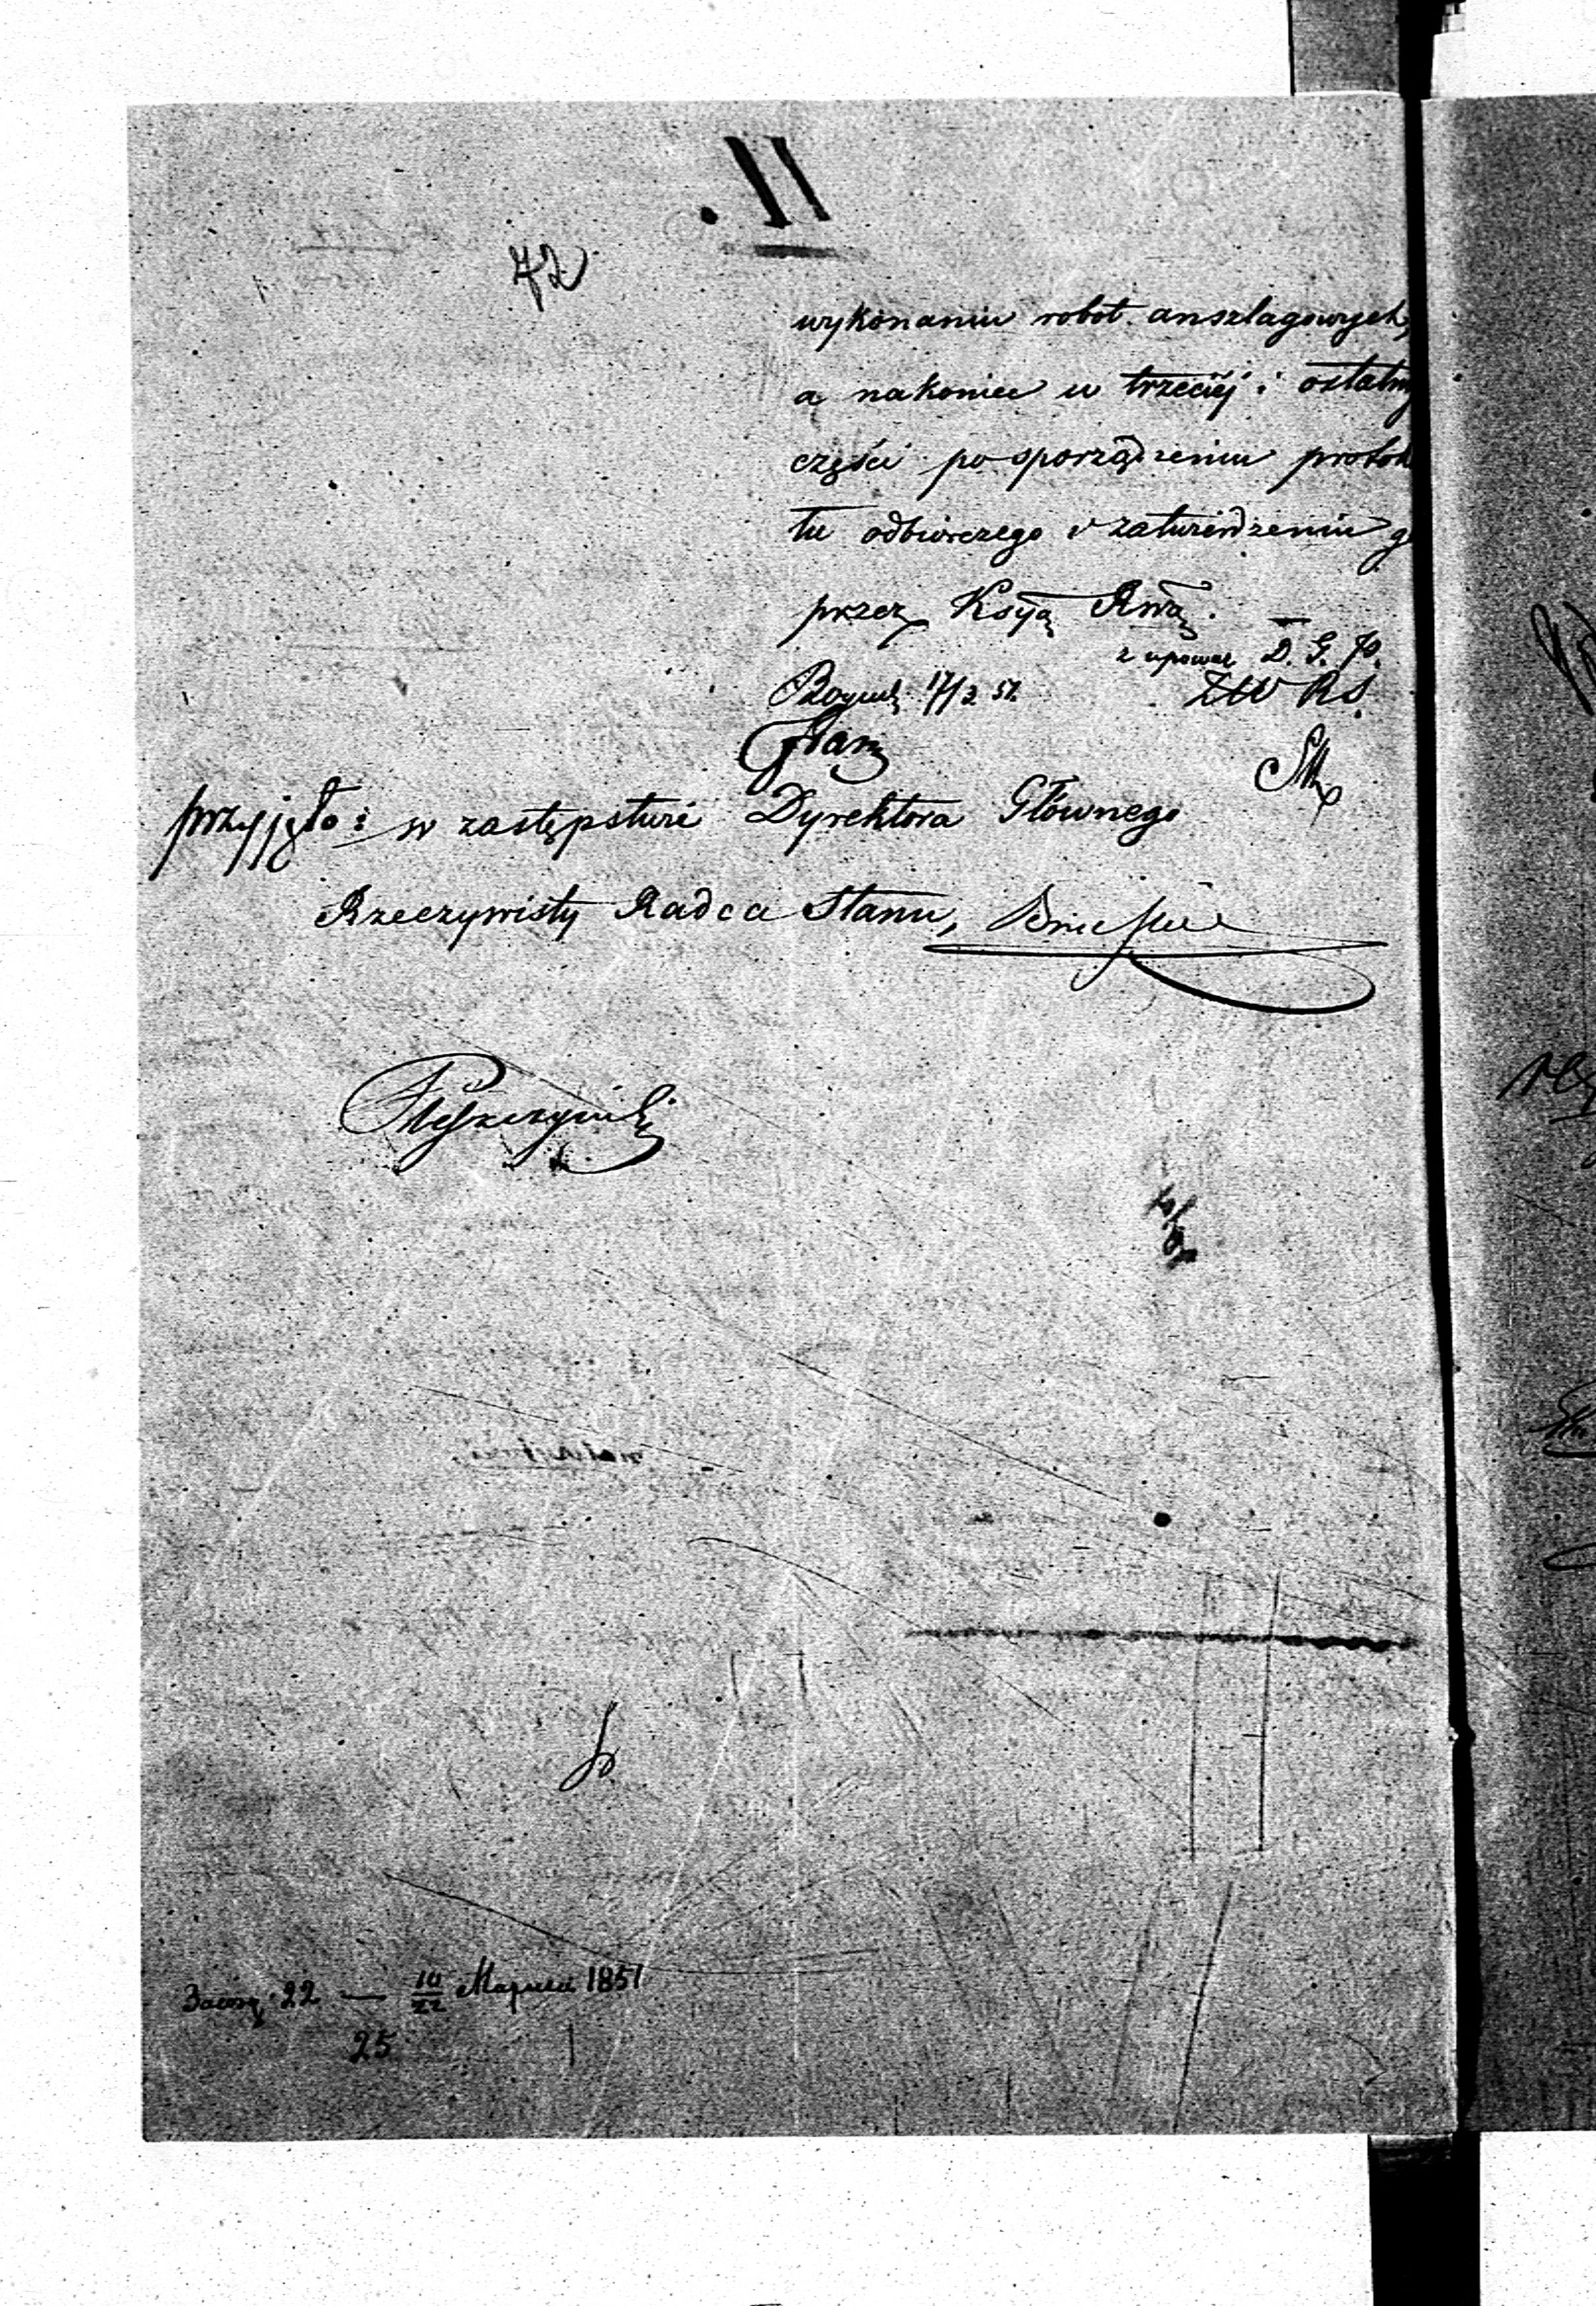 72
wykonaniu robot anszlagowych,
a nakoniec w trzeciéj i ostatny
części po sporządzeniu protok
łu odbiorczego i zatwierdzeniu g
przez Kssyą Rwą.
z upoważ D. G. P.
17/3 51.
przyjęto: w zastępstwie Dyrektora Głównego
Rzeczywisty Radca Stanu,
22 — 10/22 Марта 1851
25